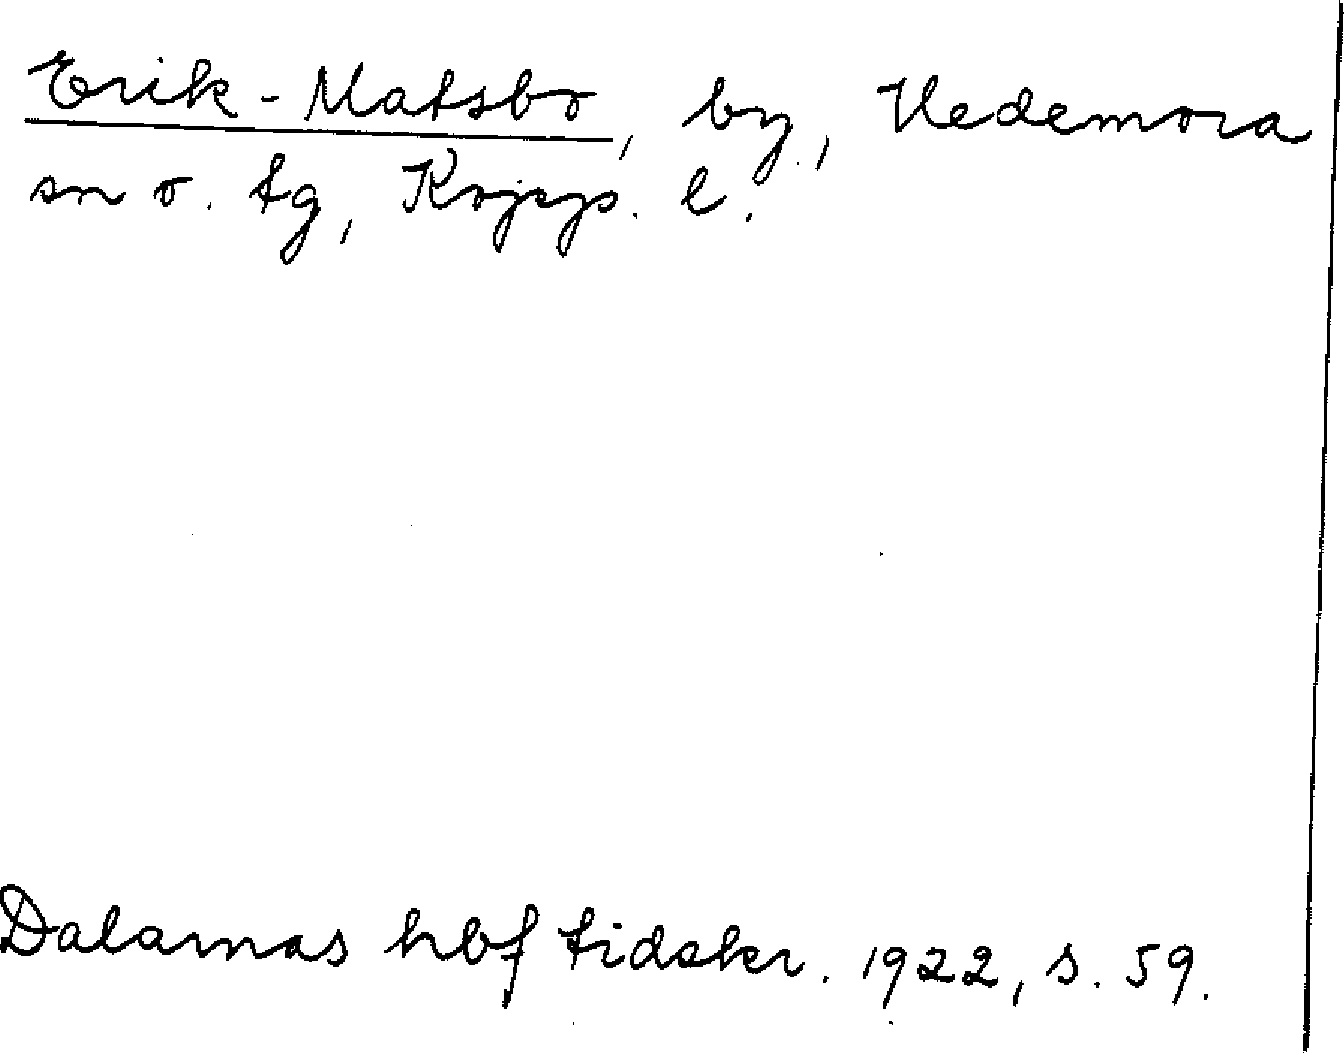 Erik-Matsbo, by, Hedemora
sn o. tg, Kopp. l.
Dalarnas hbf tidskr. 1922, s. 59.